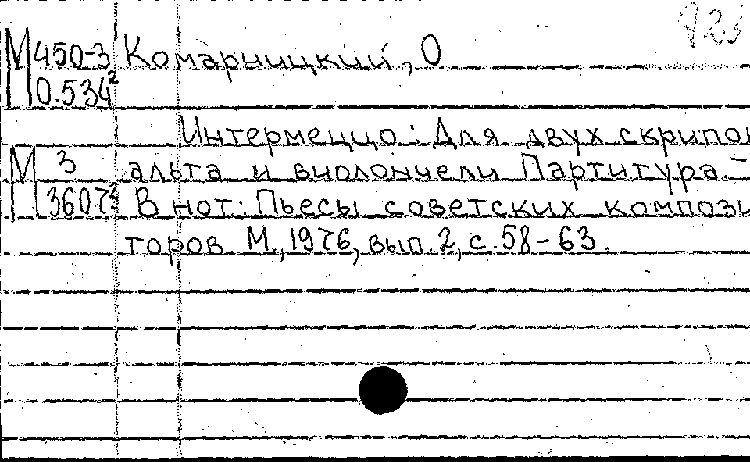 М 450-3 Комарницкий, О
0.534²
Интермеццо: Для двух скрипо
М 3 альта и виолончели Партитура. –
3607 В нот: Пьесы советских компози
торов М., 1976, вып. 2, с. 58-63.